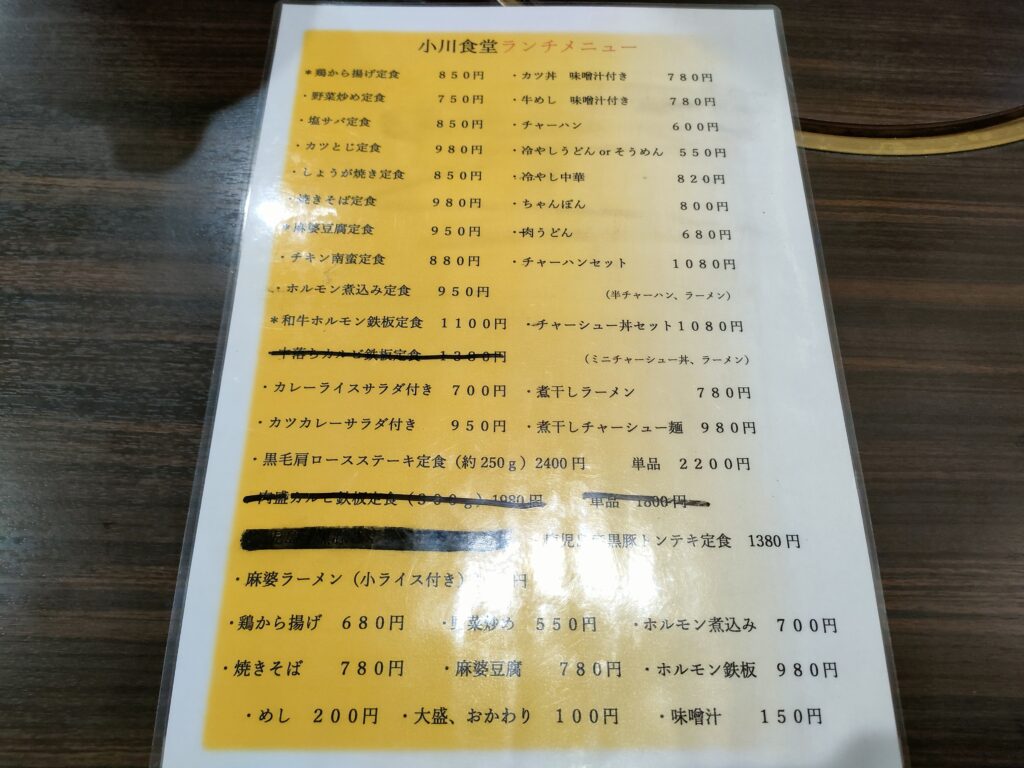 小川食堂ランチメニュー
＊鶏から揚げ定食　８５０円　・カツ丼　味噌汁付き　７８０円
・野菜炒め定食　７５０円　・牛めし　味噌汁付き　７８０円
・塩サバ定食　８５０円　・チャーハン　６００円
・カツとじ定食　９８０円　・冷やしうどん or そうめん　５５０円
・しょうが焼き定食　８５０円　・冷やし中華　８２０円
・焼きそば定食　９８０円　・ちゃんぽん　８００円
＊麻婆豆腐定食　９５０円　・肉うどん　６８０円
・チキン南蛮定食　８８０円　・チャーハンセット　１０８０円
・ホルモン煮込み定食　９５０円　（半チャーハン、ラーメン）
＊和牛ホルモン鉄板定食　１１００円　・チャーシュー丼セット１０８０円
中落ちカルビ鉄板定食　１３８０円　（ミニチャーシュー丼、ラーメン）
・カレーライスサラダ付き　７００円　・煮干しラーメン　７８０円
・カツカレーサラダ付き　９５０円　・煮干しチャーシュー麺　９８０円
・黒毛肩ロースステーキ定食（約 250ｇ）2400 円　単品　２２００円
カルビ鉄板定食　1980 円　単品　1800 円
黒豚トンテキ定食　1380 円
・麻婆ラーメン（小ライス付き）　円
・鶏から揚げ　６８０円　・野菜炒め　５５０円　・ホルモン煮込み　７００円
・焼きそば　７８０円　・麻婆豆腐　７８０円　・ホルモン鉄板　９８０円
・めし　２００円　・大盛、おかわり　１００円　・味噌汁　１５０円